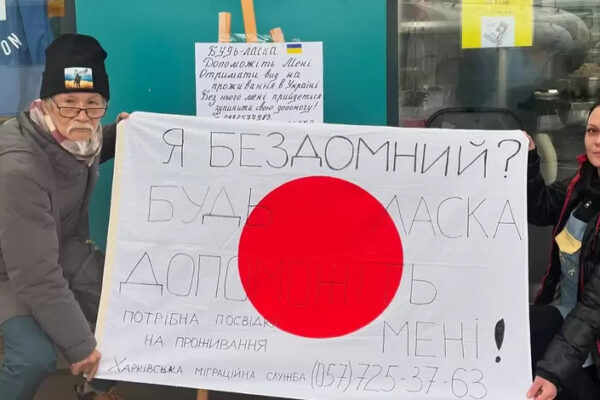 БУДЬ-ЛАСКА
ДОПОМОЖІТЬ МЕНІ
ОТРИМАТИ ВИД НА
ПРОЖИВАННЯ В УКРАЇНІ
БЕЗ НЬОГО МЕНІ ПРИЙДЕТЬСЯ
ЗУПИНИТИ СВОЮ ДОПОМОГУ!
Я БЕЗДОМНИЙ?
БУДЬ ЛАСКА
ДОПОМОЖІТЬ
МЕНІ!
ПОТРІБНА ПОСВІДКА
НА ПРОЖИВАННЯ
ХАРКІВСЬКА МІГРАЦІЙНА СЛУЖБА (057)725-37-63